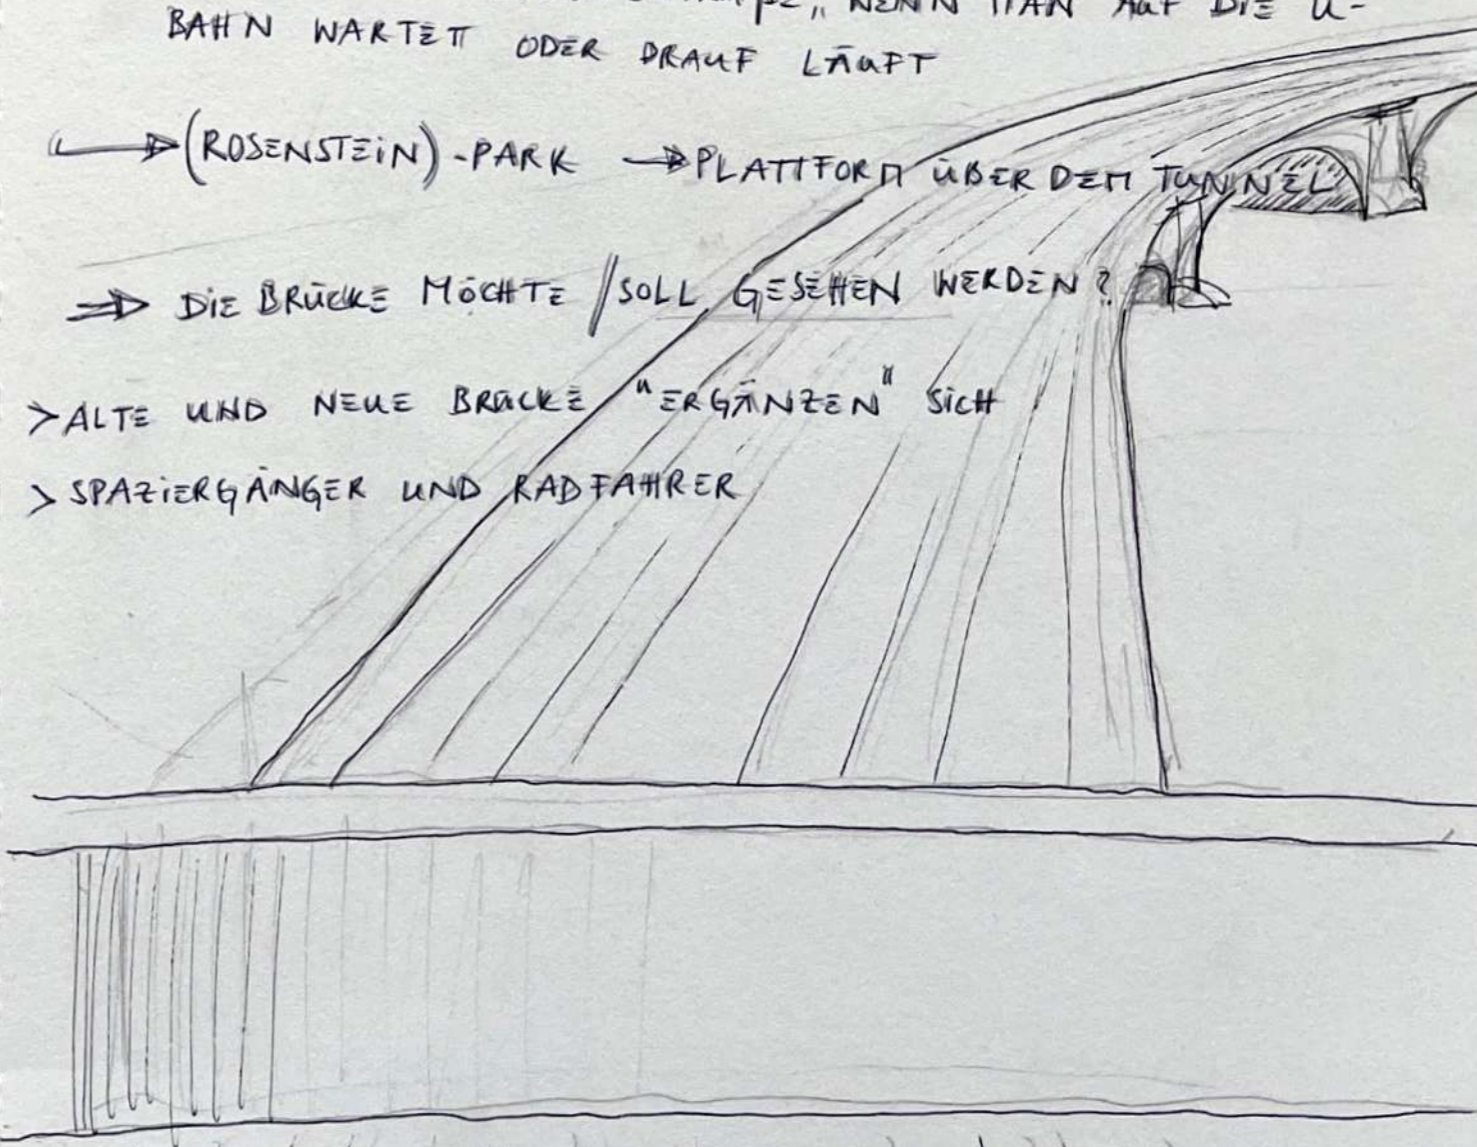 WENN MAN AUF DIE U-
BAHN WARTET ODER DRAUF LÄUFT
(ROSENSTEIN)-PARK → PLATTFORM ÜBER DEM TUNNEL
⇒ DIE BRÜCKE MÖCHTE / SOLL GESEHEN WERDEN?
> ALTE UND NEUE BRÜCKE "ERGÄNZEN" SICH
> SPAZIERGÄNGER UND RADFAHRER